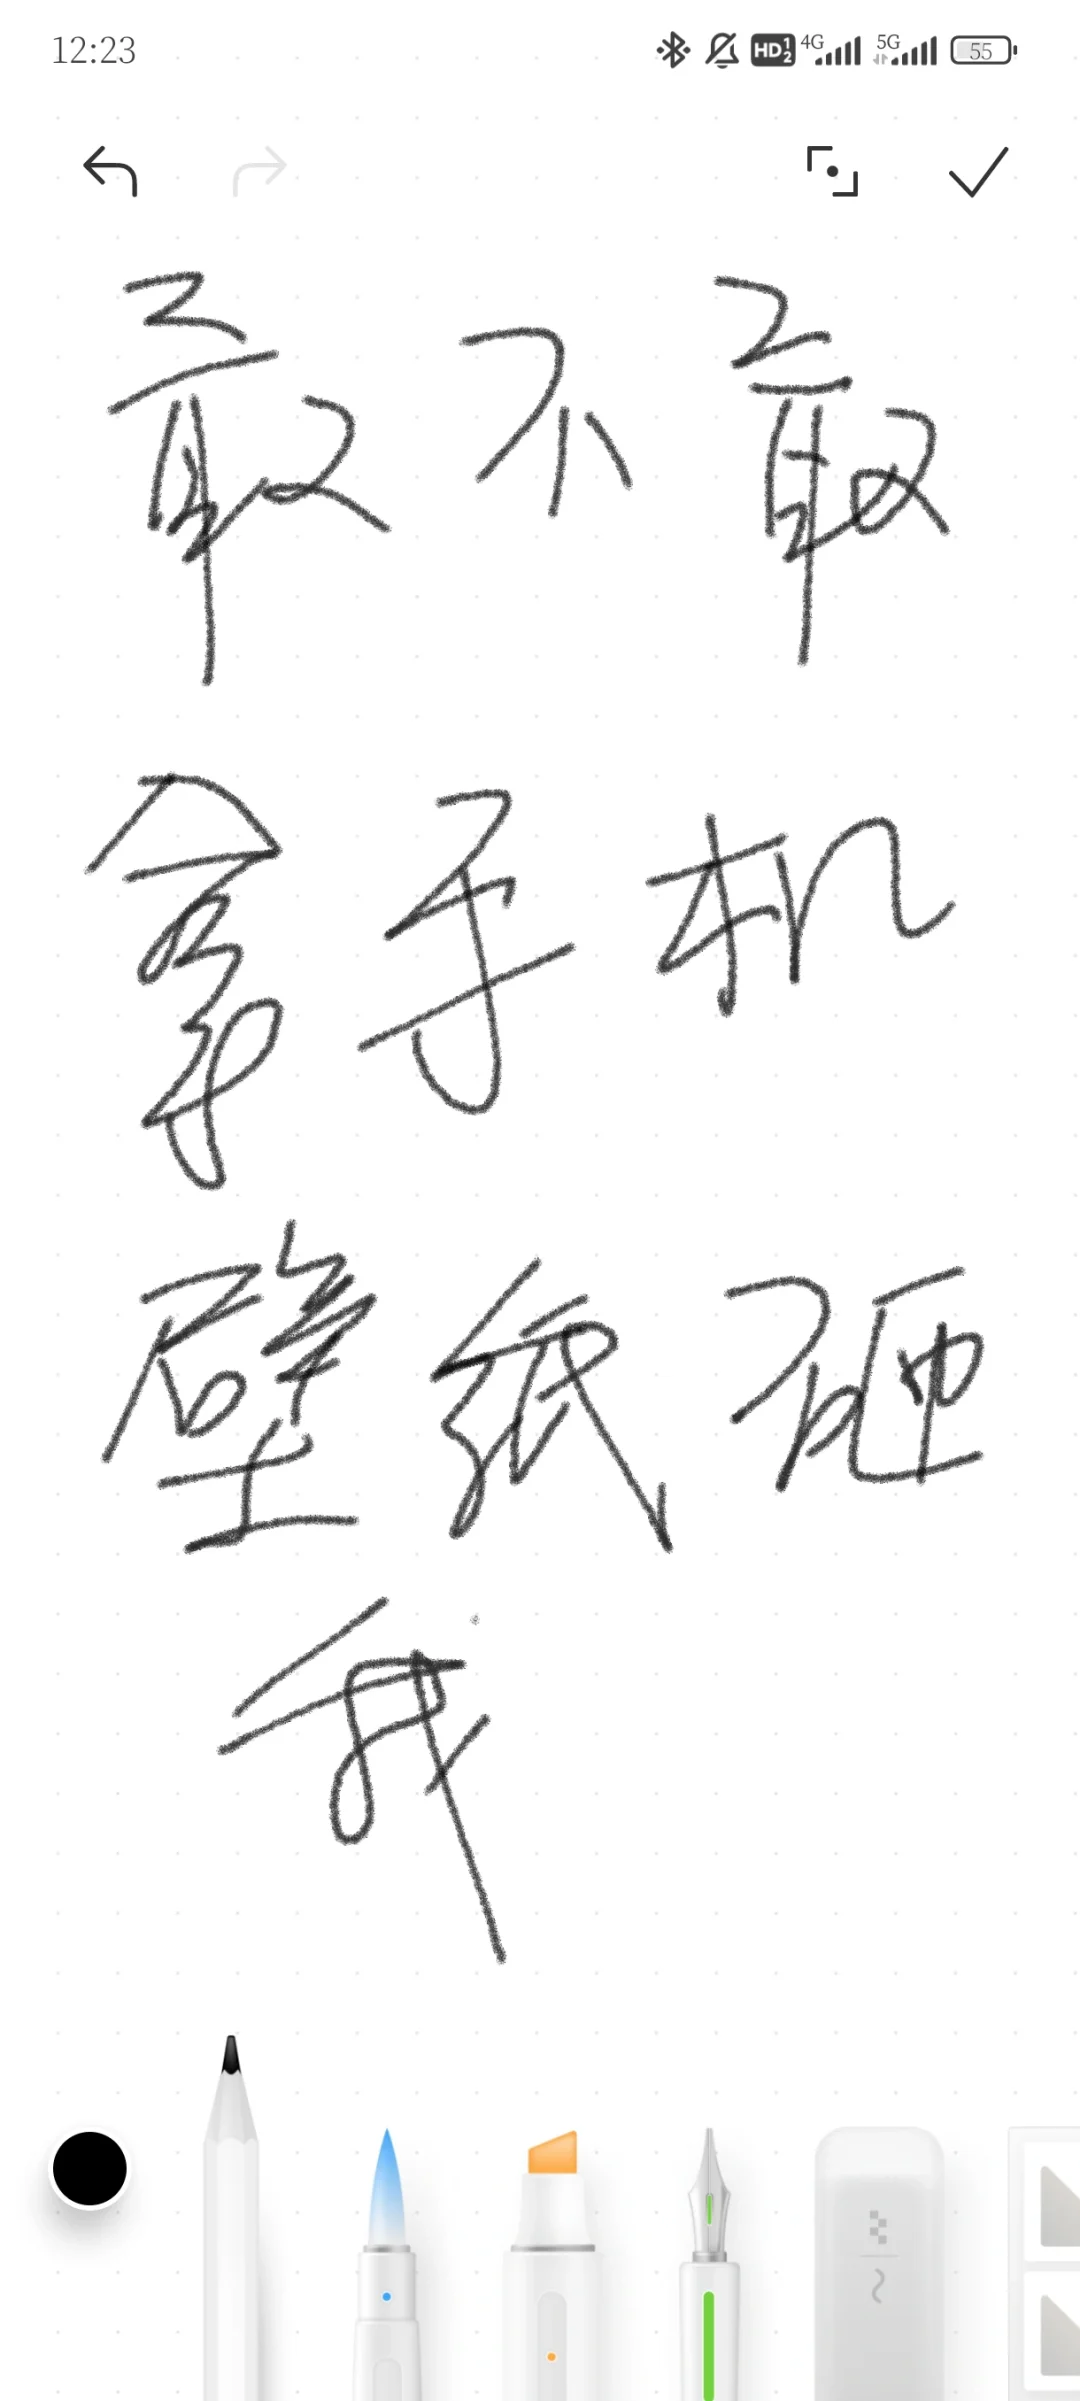 12:23
HD 1 2 4G 5G 55
敢不敢
拿手机
壁纸砸
我